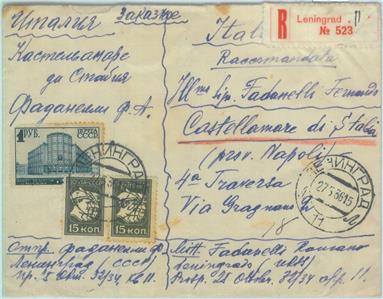 Италия Заказное
Кастелламаре
ди Стабия
Фаданелли Ф. А.
Italia
R Leningrad 11
№ 523
Raccomandata
Ill'mo Sig. Fadanelli Fernando
Castellamare di Stabia
(prov. Napoli)
4a Traversa
Via Gragnano
1 РУБ. ПОЧТА
СССР
15 КОП.
15 КОП.
ЛЕНИНГРАД
ЛЕНИНГРАД
Отпр. Фаданелли
Ленинград (СССР)
Пр. 25 Окт. 32/34 кв. 11
Mitt. Fadanelli Romano
Leningrado
Prosp. 25 Oktobr. 32/34 app. 11